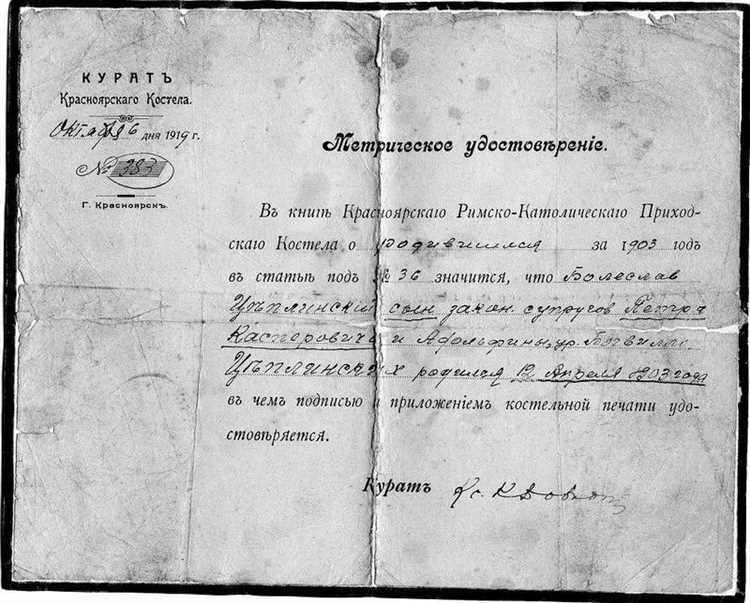 КУРАТЪ
Красноярскаго Костела.
Октября 6 дня 1919 г.
№ 383
Г. Красноярскъ.
Метрическое удостовѣреніе.
Въ книгѣ Красноярскаго Римско-Католическаго Приход-
скаго Костела о родившихся за 1903 годъ
въ статьѣ подъ № 36 значится, что Болеслав
Цѣплинскій сын закон. супругов Петра
Касперовича и Адольфины, ур.
Цѣплинских родился 12 Апреля 1903 года
въ чемъ подписью и приложеніемъ костельной печати удо-
стовѣряется.
Куратъ Кс.